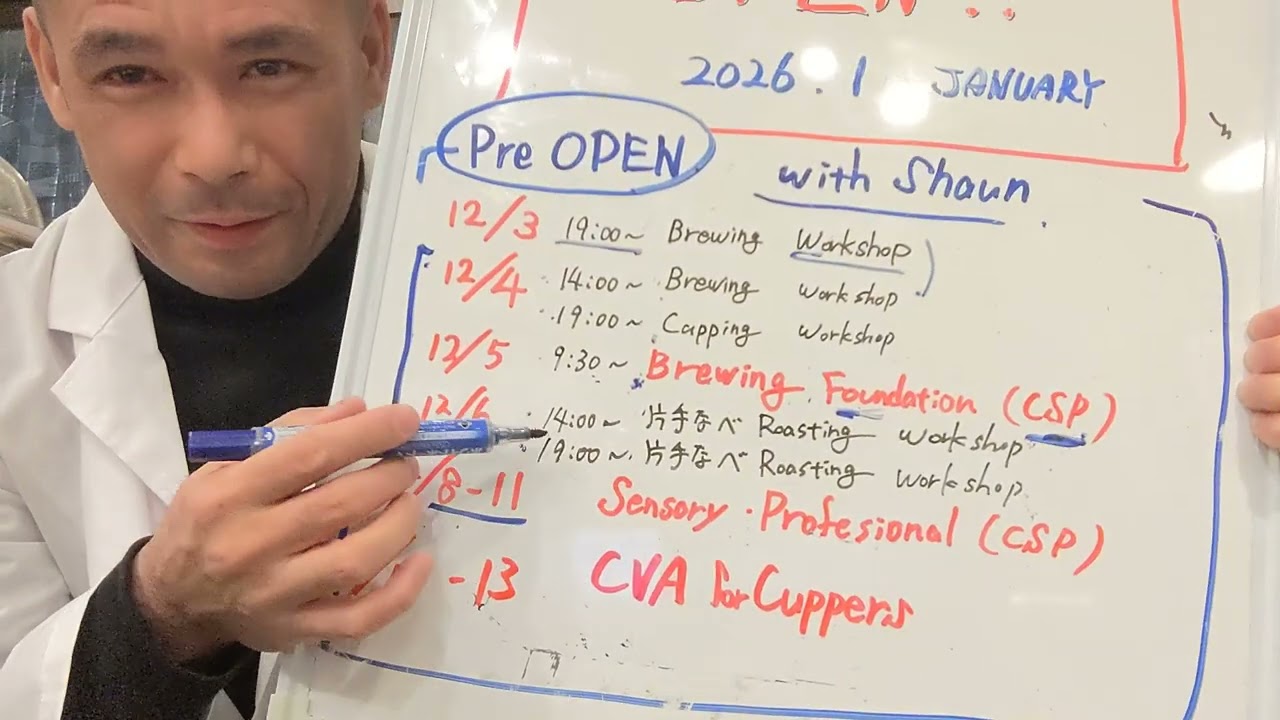 2026.1 JANUARY
Pre OPEN with Shaun
12/3 19:00~ Brewing Workshop
12/4 14:00~ Brewing workshop
19:00~ Capping workshop
12/5 9:30~ Brewing Foundation (CSP)
12/6 14:00~ 片手なべ Roasting workshop
19:00~ 片手なべ Roasting workshop
/8-11 Sensory・Profesional (CSP)
-13 CVA for Cuppers